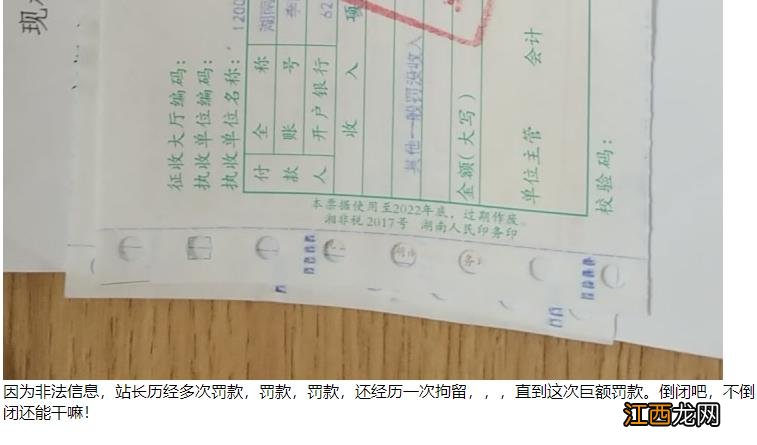 现
征收大厅编码：
执收单位编码：
执收单位名称：
1200
付款人
全称
账号
开户银行
湖南
季
62
收入项
其他一般罚没收入
金额（大写）
单位主管
会计
校验码：
本票据使用至2022年底，过期作废
湘非税2017号 湖南人民印务印
因为非法信息，站长历经多次罚款，罚款，罚款，还经历一次拘留，，，直到这次巨额罚款。倒闭吧，不倒
闭还能干嘛！
江西龙网